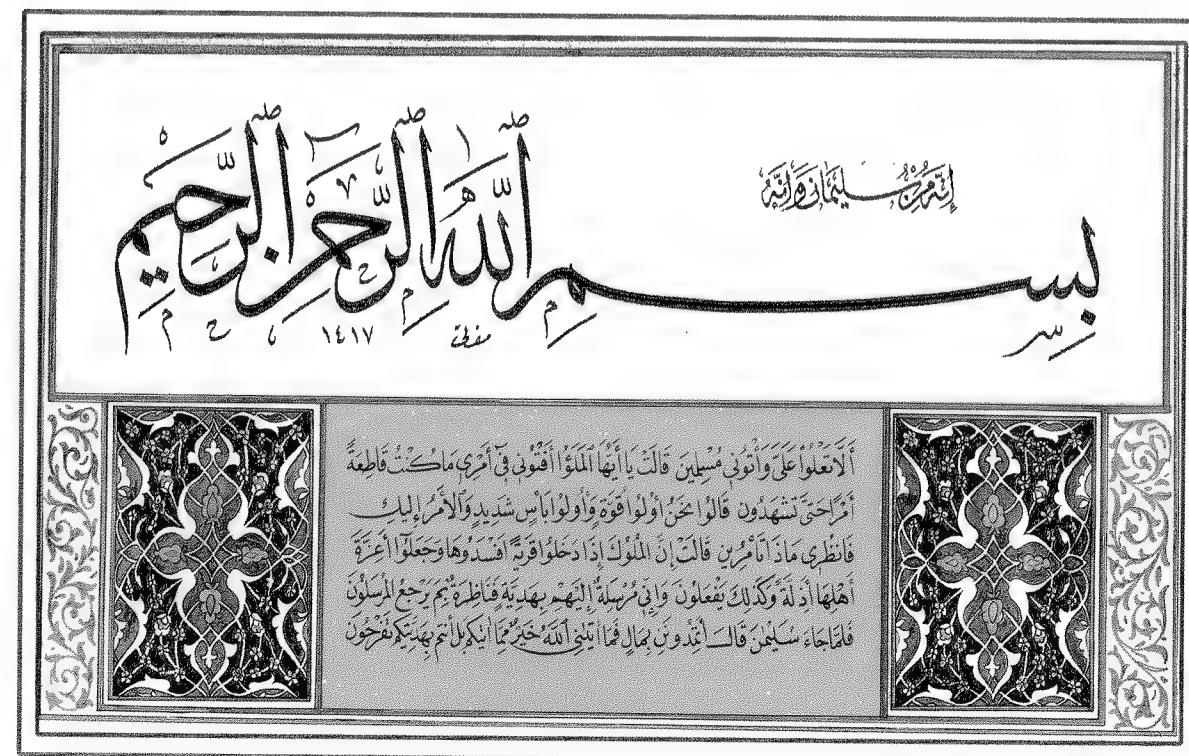 إِنَّهُ مِنْ سُلَيْمَانَ وَإِنَّهُ
بِسْمِ ٱللَّهِ ٱلرَّحْمَٰنِ ٱلرَّحِيمِ
١٤١٧
أَلَّا تَعْلُوا عَلَيَّ وَأْتُونِي مُسْلِمِينَ قَالَتْ يَا أَيُّهَا ٱلْمَلَؤُا أَفْتُونِي فِي أَمْرِي مَا كُنْتُ قَاطِعَةً
أَمْرًا حَتَّى تَشْهَدُونِ قَالُوا نَحْنُ أُولُوا قُوَّةٍ وَأُولُوا بَأْسٍ شَدِيدٍ وَٱلْأَمْرُ إِلَيْكِ
فَانْظُرِي مَاذَا تَأْمُرِينَ قَالَتْ إِنَّ ٱلْمُلُوكَ إِذَا دَخَلُوا قَرْيَةً أَفْسَدُوهَا وَجَعَلُوٓا أَعِزَّةَ
أَهْلِهَا أَذِلَّةً وَكَذَٰلِكَ يَفْعَلُونَ وَإِنِّي مُرْسِلَةٌ إِلَيْهِمْ بِهَدِيَّةٍ فَنَاظِرَةٌ بِمَ يَرْجِعُ ٱلْمُرْسَلُونَ
فَلَمَّا جَاءَ سُلَيْمٰنَ قَالَ أَتُمِدُّونَنِ بِمَالٍ فَمَا آتَٰنِيَ ٱللَّهُ خَيْرٌ مِمَّا آتَٰكُمْ بَلْ أَنْتُمْ بِهَدِيَّتِكُمْ تَفْرَحُونَ